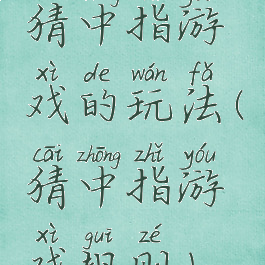 猜中指游
xì de wán fǎ
戏的玩法(
cāi zhōng zhǐ yóu
猜中指游
xì guī zé
戏规则)